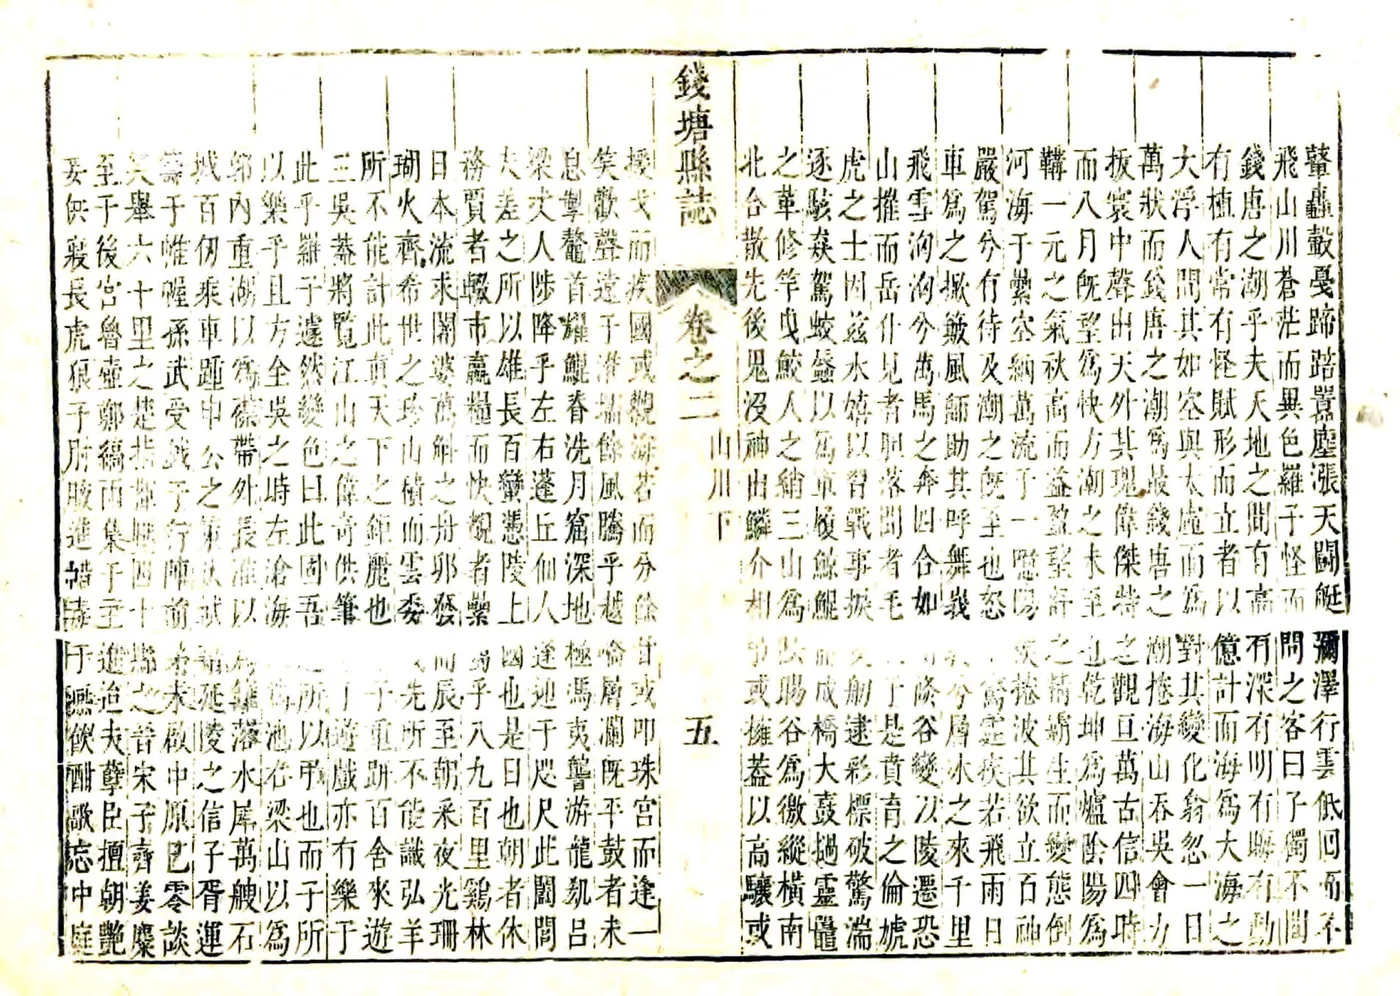 鼙轟轂戞蹄踏嚣塵漲天鬭艇瀰澤行雲低回而不
飛山川蒼茫而異色羅子怪而問之客曰子獨不聞
錢唐之潮乎夫天地之間有高有深有明有晦有動
有植有常有怪賦形而立者以億計而海爲大海之
大浮人間其如空與太虛而爲對其變化翕忽一日
萬狀而錢唐之潮爲最錢唐之潮捲海山吞吳會力
扳寰中聲出天外其瑰偉傑特之觀亘萬古信四時
而八月旣望爲快方潮之未至也乾坤爲爐陰陽爲
鞲一元之氣秋高而益盈壑訏之精霸生而變態倒
河海于纍空納萬流于一噫陽侯捲波其欲立百神
嚴駕兮有待及潮之旣至也怒霆疾若飛雨日
車爲之掀簸風師助其呼舞峩兮層冰之來千里
飛雪洶洶兮萬馬之奔四合如谷變以陵遷恐
山摧而岳仆見者胆落聞者毛于是賁育之倫虓
虎之士因兹水嬉以習戰事捩舠逮彩標破驚湍
逐駭猋駕蛟蜃以爲軍履鯨鯤而成橋大鼓撾靈鼉
之革修竿曳鮫人之綃三山爲陽谷爲徼縱橫南
北合散先後鬼没神出鱗介相或擁蓋以高驤或
錢塘縣誌
卷之二
山川下
五
援戈而疾國或觀海若而分餘甘或叩珠宮而逢一
笑歡聲達于淮堧餘風騰乎越層瀾旣平鼓者未
息掣鰲首耀鯤脊洗月窟深地極馮夷讋游龍匆吕
梁丈人陟降乎左右蓬丘仙人逢迆于咫尺此闔閭
夫差之所以雄長百蠻憑陵上國也是日也朝者休
務賈者輟市贏糧而快觀者纍乎八九百里鷄林
日本流求闍婆萬斛之舟郵發而辰至朝釆夜光珊
瑚火齊希世之珍山積而雲委先所不能識弘羊
所不能計此眞天下之鉅麗也子重趼百舍來遊
三吳葢將覧江山之偉奇供筆遊戲亦有樂于
此乎羅子遽然變色曰此固吾所以弔也而子所
以樂乎且方全吳之時左滄海爲池右梁山以爲
郭内重湖以爲襟帶外長淮以落水犀萬艘石
城百仞乘車踵申公之延陵之信子胥運
籌于帷幄孫武受鉞于行陣前未啟中原已零談
笑舉六十里之楚指四十縣之晉宋子齊姜麋
至于後宮魯壺鄭縞而集于至進迨夫孽臣擅朝艶
妾供寢長虎狼于肘腋進于讌飲酣歌忘中庭